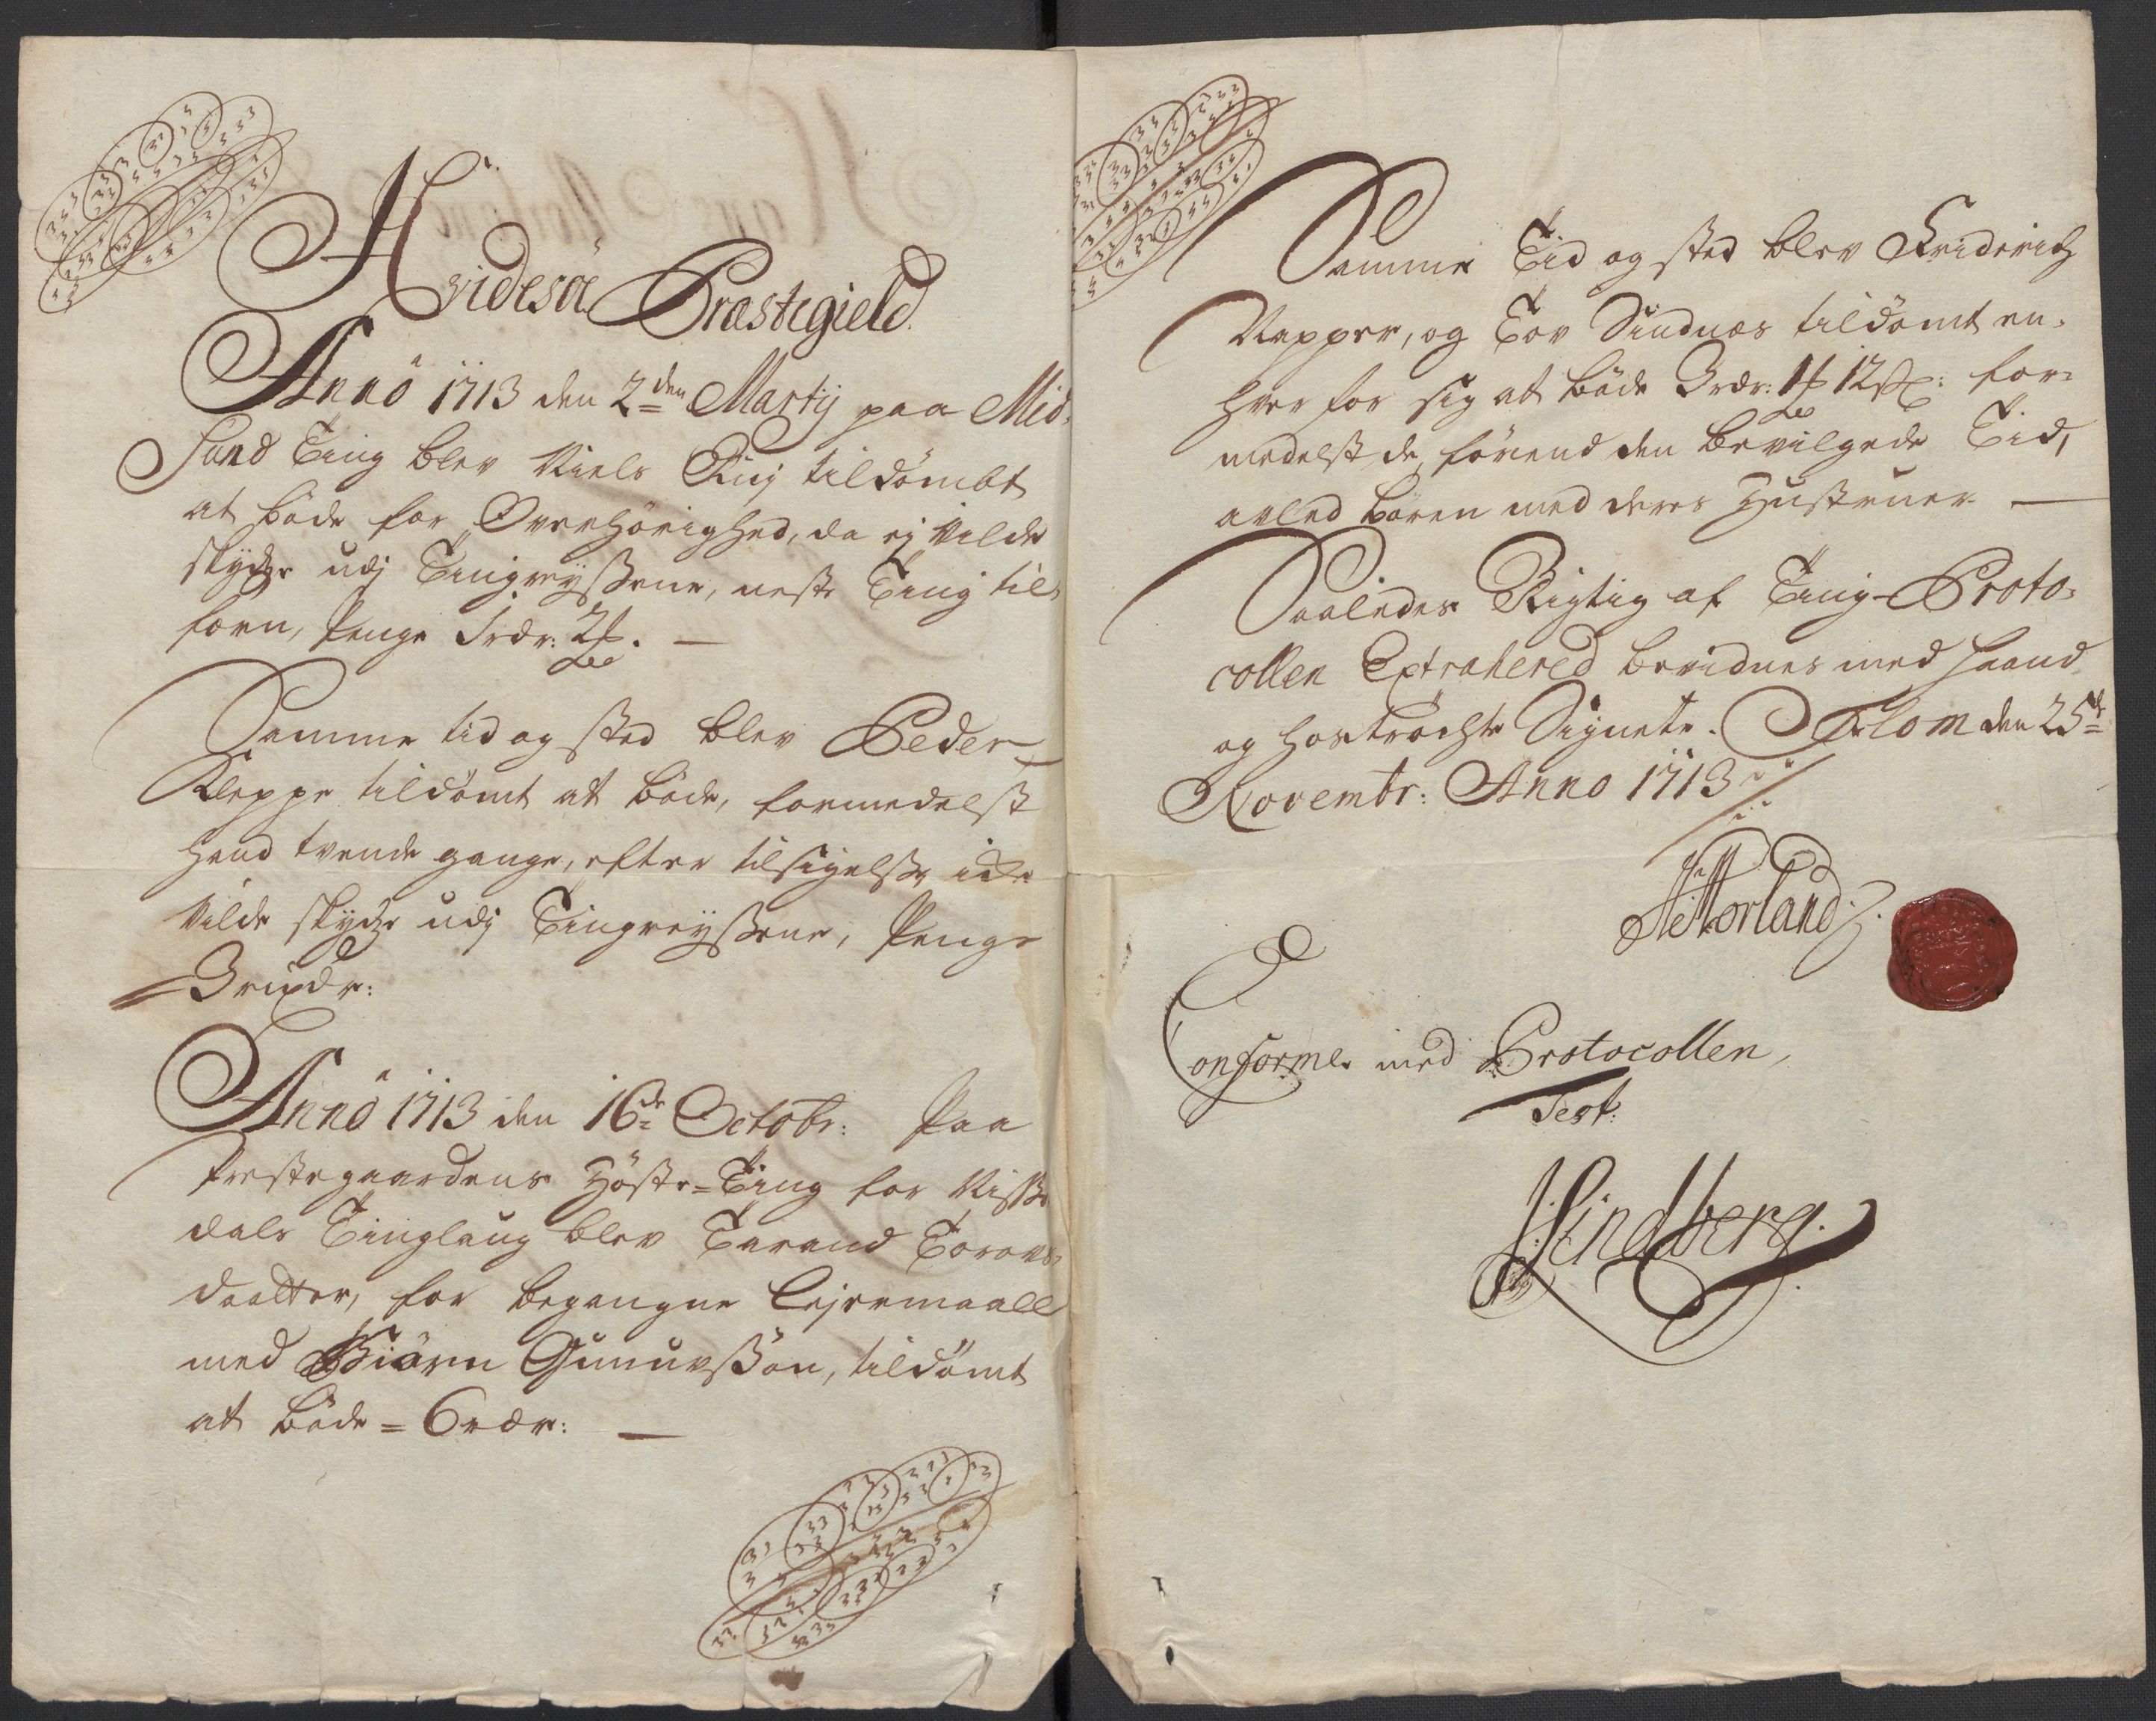 Hvidesöe Præstegield.
Anno 1713 den 2den Martij paa Mid-
Sund Ting blev Niels Ring tildömbt
at böde for Overhörighed, da ej Vilde
skydze udj Tingreyssene, neste Ting til-
forn, Penge 1 rdr: 2
Samme tid og sted blev Peder
Kleppe tildömt at böde, formedelst
hand tvende gange, efter tilsigelse icke
Vilde skydze udj Tingreyssene, Penge
3 rixdr:
Anno 1713 den 16de Octobr: Paa
Prestegaardens Höste-Ting for Nisse
dals Tinglaug blev Tarand Torovs-
daatter, for begangne Lejermaall
med Biörn Gunuvssön, tildömt
at böde = 6 rdr:
Samme Tid og sted blev Friderich
Napper, og Tov Sindnæs tildömt en-
hver for sig at böde 3 rdr: 1 12 s: for-
medelst de forend den bevilgede Tid,
avled Börn med deres Hustruer
Saaledes Rigtig af Ting-Proto-
collen Extrahered bevidnes med Haand
og hoströchte Signete. Flom den 25de
Novembr: Anno 1713
Morland
Conforme med Protocollen,
Test:
J: Lindberg.